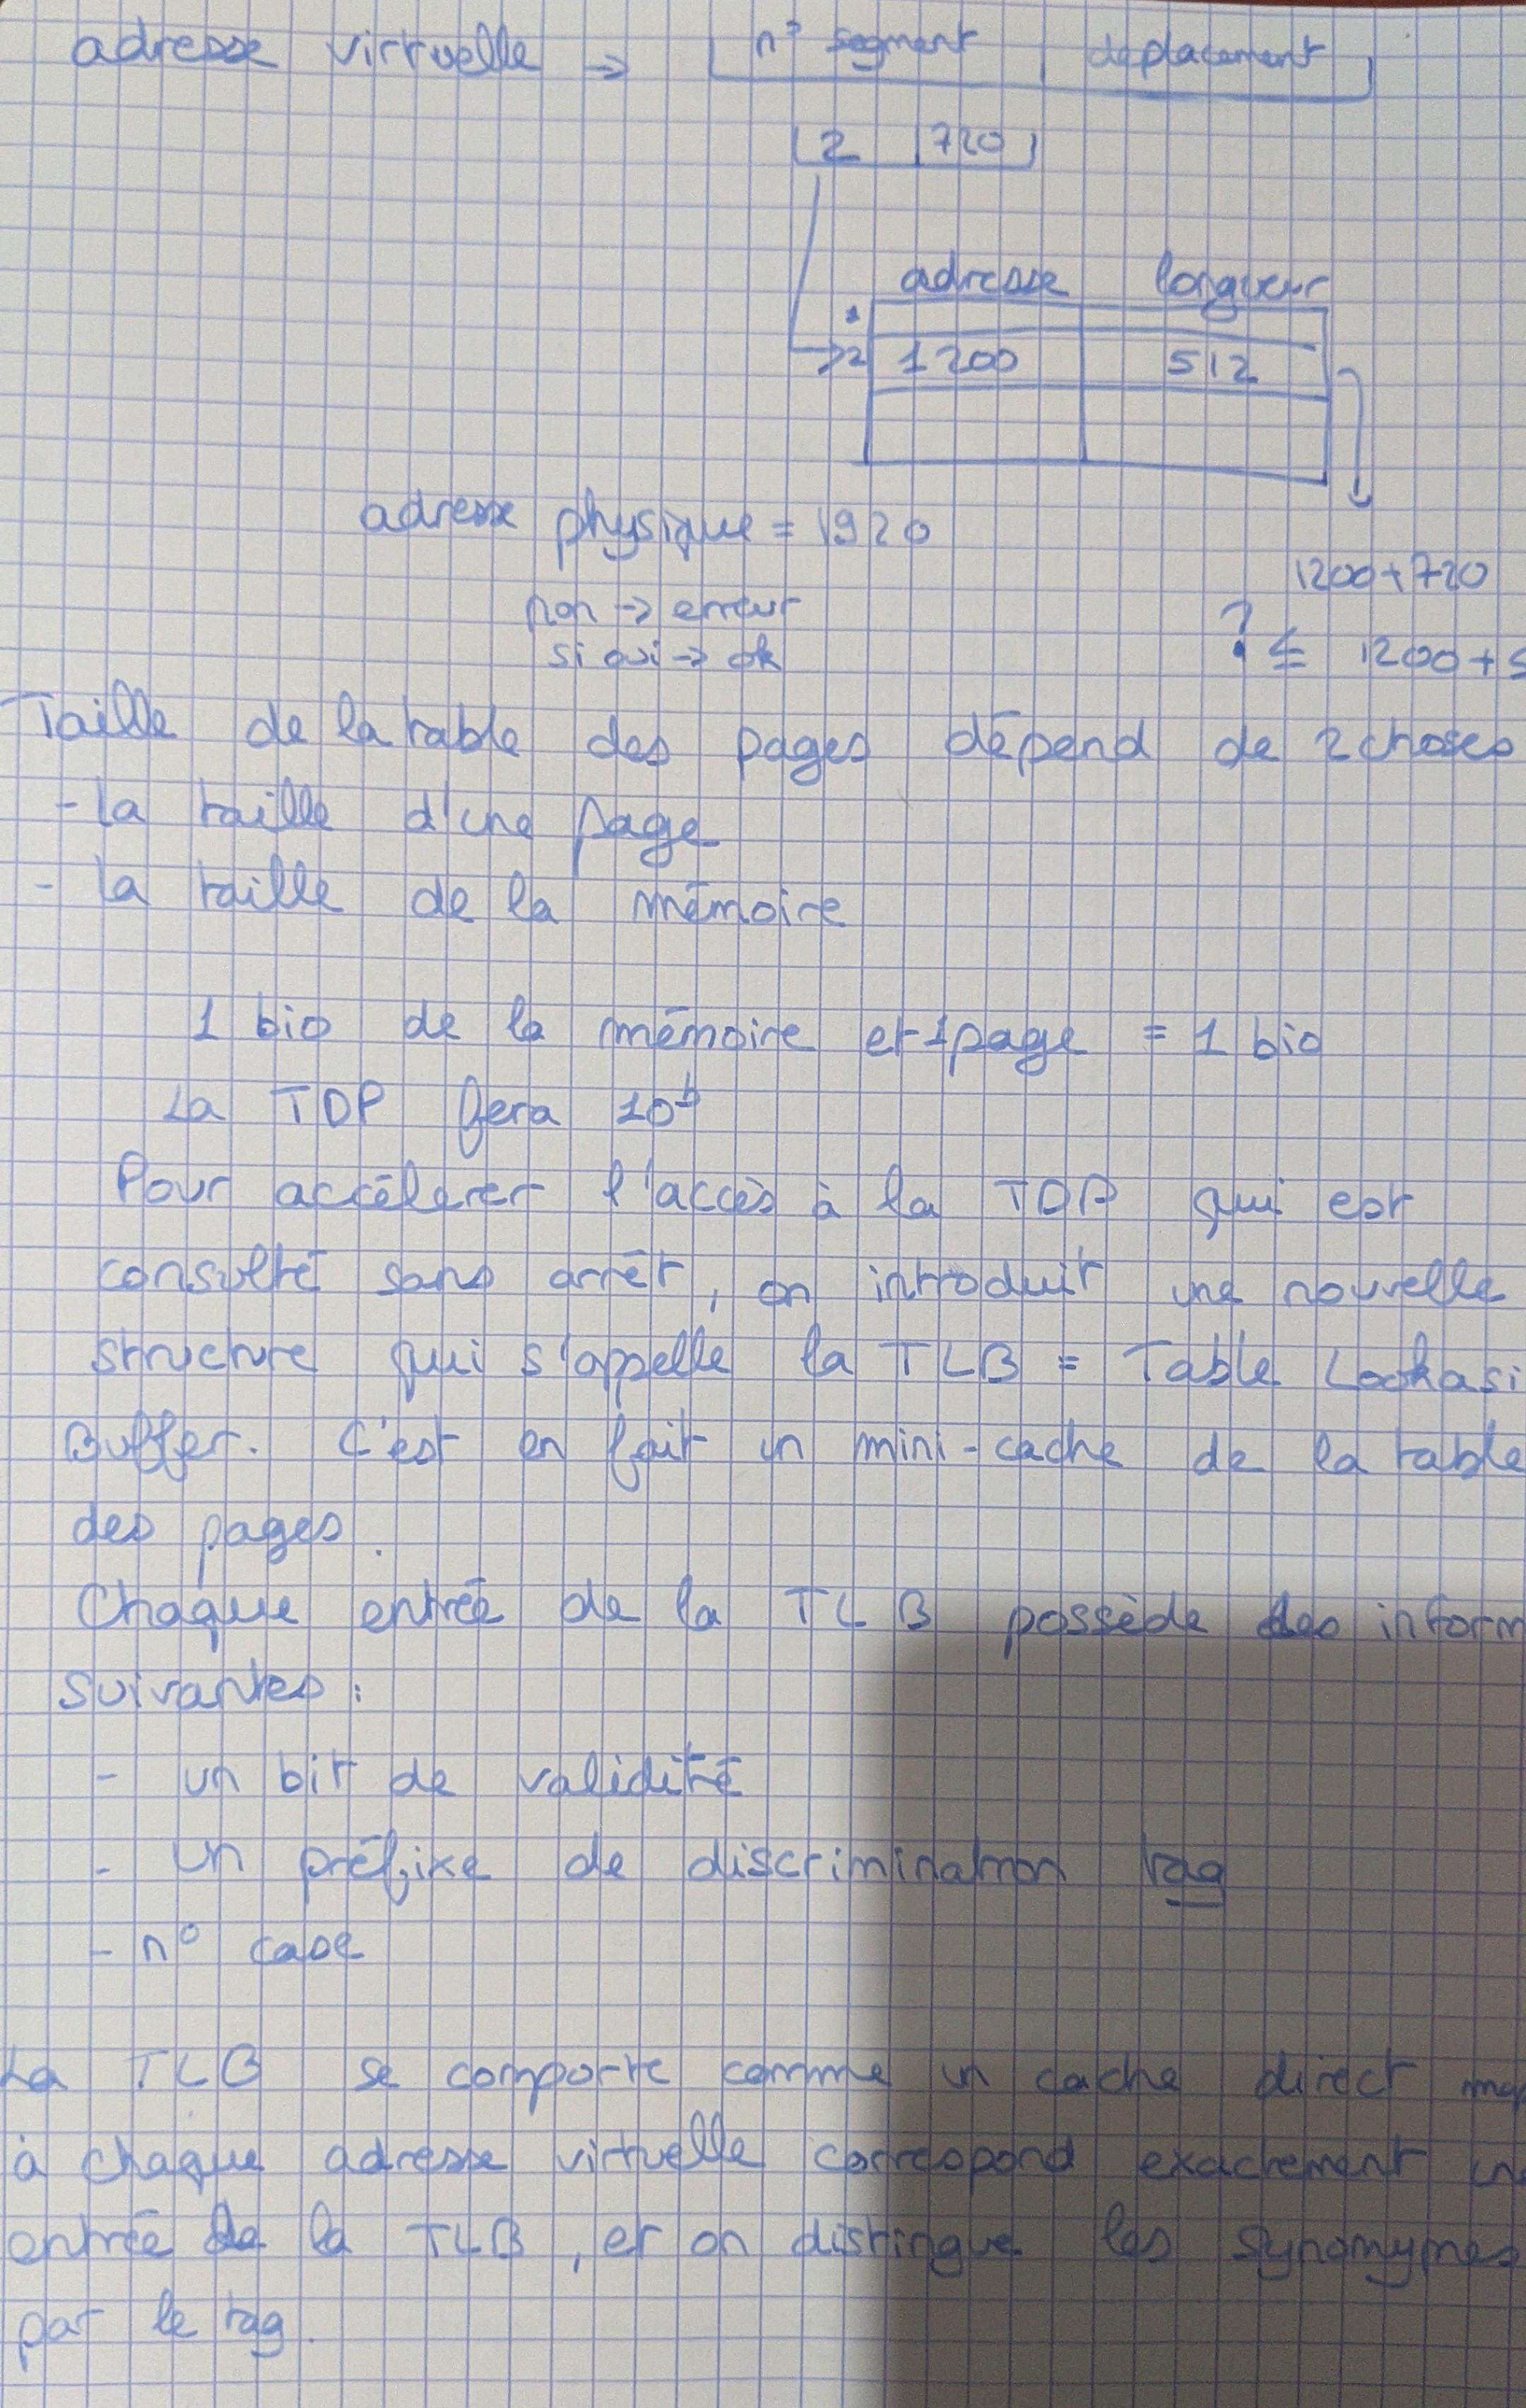 adresse virtuelle → n° segment déplacement
2 720
adresse longueur
1
2 1200 512
adresse physique = 1920
1200+720
non → erreur
? ≤ 1200+5
si oui → ok
Taille de la table des pages dépend de 2 choses
- la taille d'une page
- la taille de la mémoire
1 bio de la mémoire et 1 page = 1 bio
La TDP fera
Pour accélérer l'accès à la TDP qui est
consulté sans arrêt, on introduit une nouvelle
structure qui s'appelle la TLB = Table Lookasi
Buffer. C'est en fait un mini-cache de la table
des pages.
Chaque entrée de la TLB possède des inform
suivantes :
- un bit de validité
- un préfixe de discrimination tag
- n° case
La TLB se comporte comme un cache direct map
à chaque adresse virtuelle correspond exactement une
entrée de la TLB, et on distingue les synonymes
par le tag.